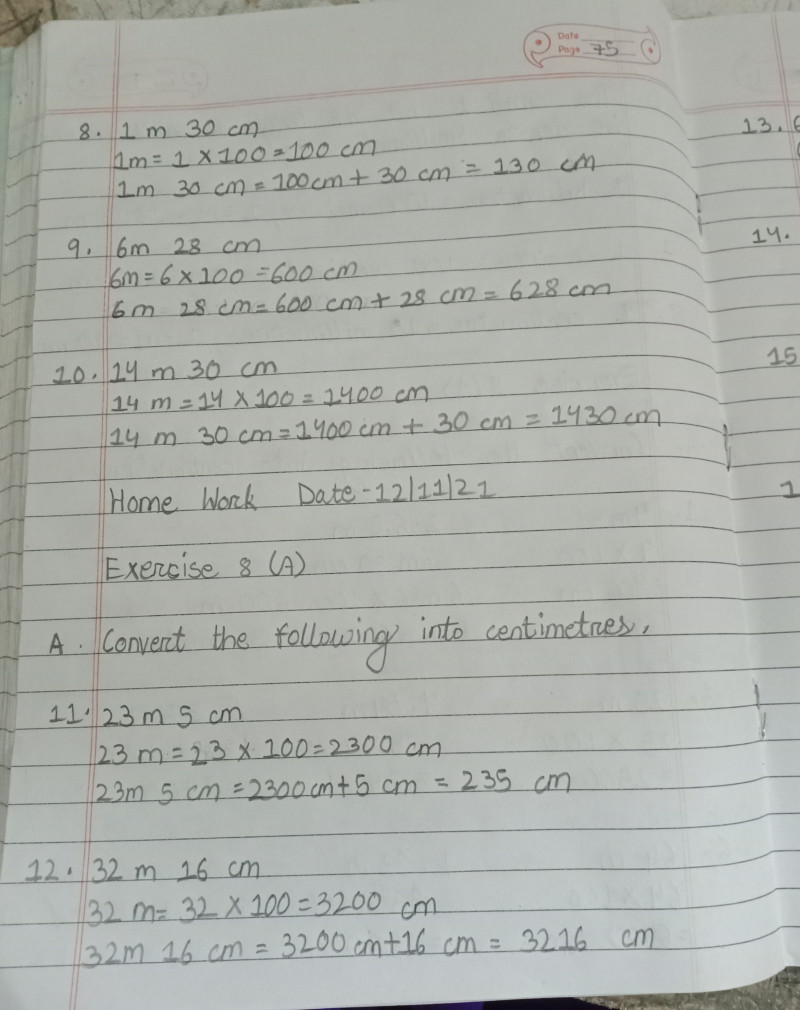 Date
Page 75
8. 1 m 30 cm
1m = 1 × 100 = 100 cm
1m 30 cm = 100cm + 30 cm = 130 cm
9. 6m 28 cm
6m = 6 × 100 = 600 cm
6m 28 cm = 600 cm + 28 cm = 628 cm
10. 14 m 30 cm
14 m = 14 × 100 = 1400 cm
14 m 30 cm = 1400 cm + 30 cm = 1430 cm
Home Work Date - 12/11/21
Exercise 8 (A)
A. Convert the following into centimetres.
11. 23 m 5 cm
23 m = 23 × 100 = 2300 cm
23m 5 cm = 2300cm + 5 cm = 235 cm
12. 32 m 16 cm
32 m = 32 × 100 = 3200 cm
32m 16 cm = 3200 cm + 16 cm = 3216 cm
13.
14.
15
1